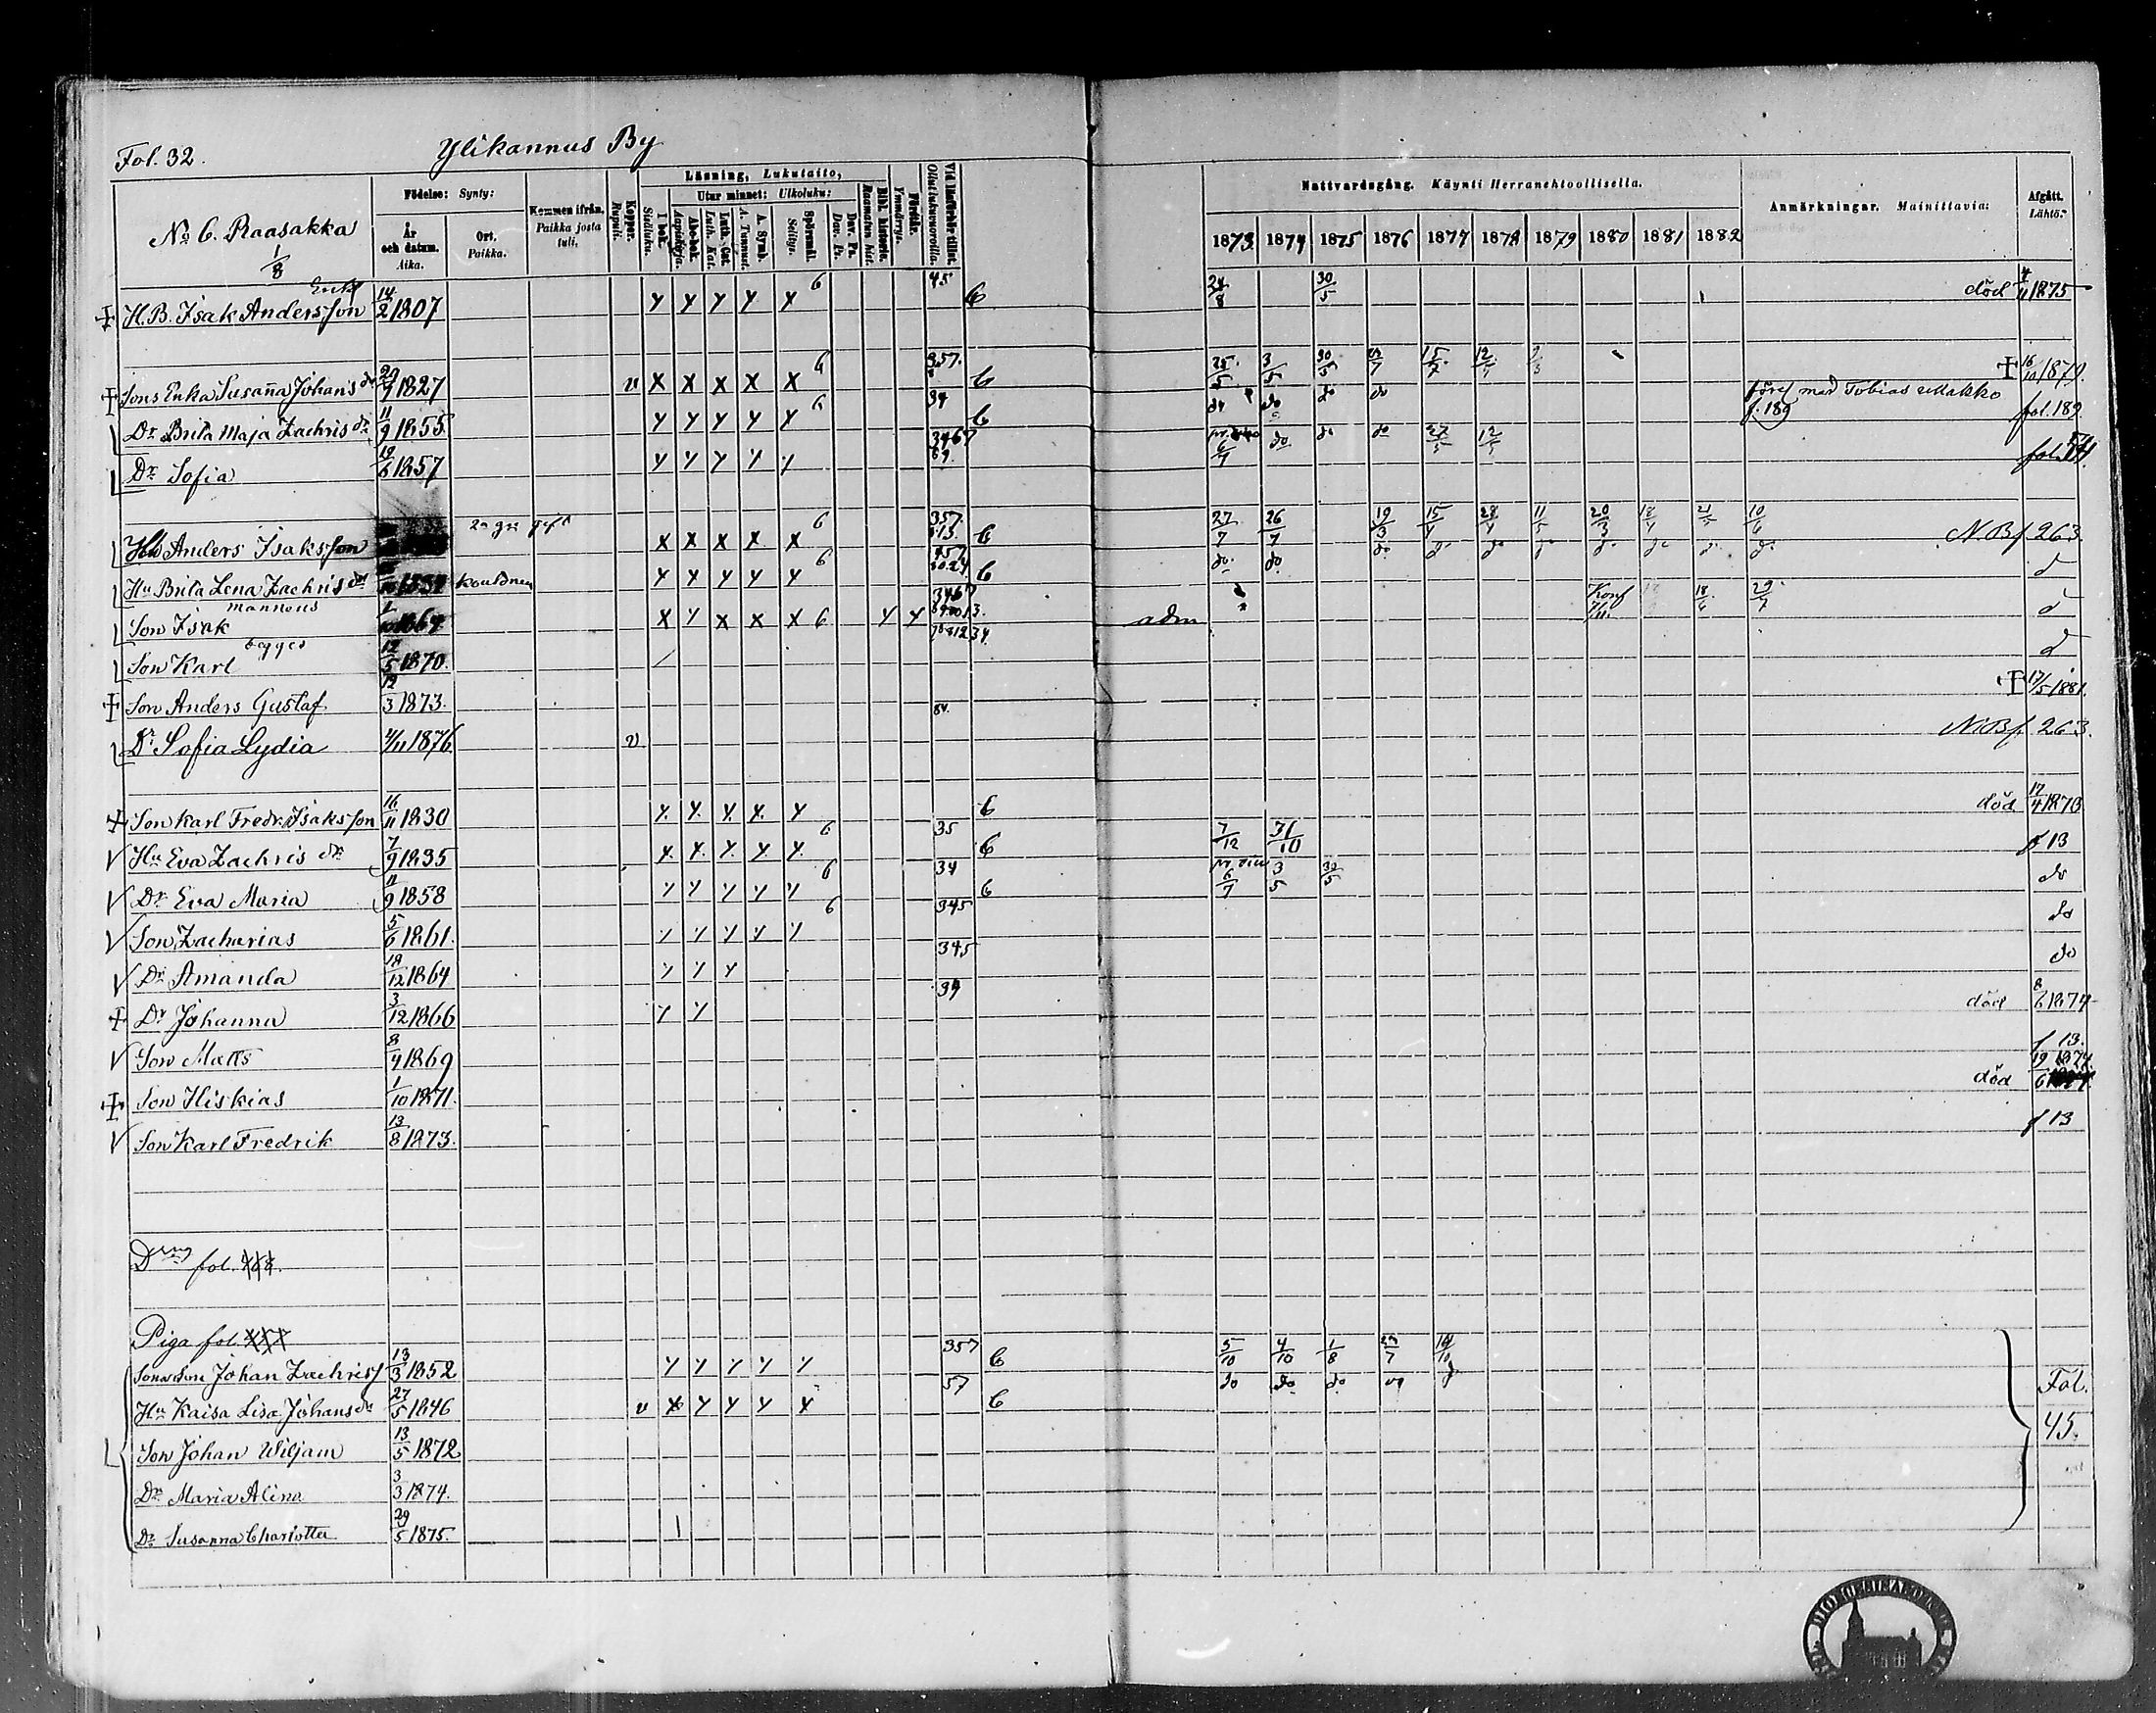 Fol. 32.
Ylikannus By
No 6. Raasakka
1/8
Födelse: Synty:
År och datum. Aika.
Ort. Paikka.
Kommen ifrån. Paikka josta tuli.
Koppor. Rupuli.
Läsning, Lukutaito,
Utur minnet: Ulkoluku:
I bok. Sisäluku.
Abc-bok. Aapiskirja.
Luth. Cat. Luth. Kat.
A. Symb. A. Tunnust.
Spörsmål. Selitys.
Dav. Ps. Dav. Ps.
Bibl. historie. Raamatun hist.
Förstår. Ymmärrys.
Vid läseförhör tillst. Ollut lukuvuorolla.
Nattvardsgång. Käynti Herranehtoollisella.
1873 1874 1875 1876 1877 1878 1879 1880 1881 1882
Anmärkningar. Mainittavia:
Afgått. Lähtö:
Enkl
H. B. Isak Andersson 14/2 1807 y y y y x 6 45 6 24/8 30/5 död 4/11 1875
Sons Enka Susaña Johans dr 29/9 1827 v x x x x x 6 357. 6 25/5 3/5 30/5 15/7 12 † 16/10 1879.
Dr Brita Maja Zachris dr 11/9 1855 y y y y y 6 34 6 do do do do förel med Tobias Makko f. 189 fol. 189
Dr Sofia 19/6 1857 y y y y y 3467 89. 6/7 do do do 27/5 12 fol.
Hb Anders Isaksson 2a gn gift x x x x x 6 357. 613. 6 27/7 26/7 19/3 15/4 28/4 11/5 20/3 18/4 21 10/6 N. B f 263.
Hu Brita Lena Zachris dr 1834 y y y y y 6 457 6 do do do do do do do do do do d
Son Isak mannens 1864 x y x x x 6 y y 3467 adm Konf 18/6 29/7 d
Son Karl begges 12/5 1870. d
Son Anders Gustaf 12/3 1873. 84. † 17/5 1881.
Dr Sofia Lydia 4/11 1876 v N. B f 263.
Son Karl Fredr. Isaksson 16/11 1830 y y y y y 6 död 17/4 1873
Hu Eva Zachris dr 7/9 1835 y y y y y 6 35 6 7/12 31/10 f 13
Dr Eva Maria 11/9 1858 y y y y y 6 34 6 6/7 3/5 30/5 do
Son Zacharias 5/6 1861. y y y y y 6 345 do
Dr Amanda 18/12 1864 y y y 345 do
Dr Johanna 3/12 1866 y y 34 död 8/6 1874
Son Matts 8/4 1869 f 13.
Son Hiskias 1/10 1871. död 19/6 1874.
Son Karl Fredrik 13/8 1873. f 13
Dreng fol.
Piga fol.
Sonas Son Johan Zachriss 13/3 1852 y y y y y 357 6 5/10 4/10 1/8 29/7 14/10
Hu Kaisa Lisa Johans dr 27/5 1846 v x y y y x 57 6 do do do do
Son Johan Wiljam 13/5 1872
Dr Maria Alina 3/3 1874.
Dr Susanna Charlotta 29/5 1875.
Fol. 45.